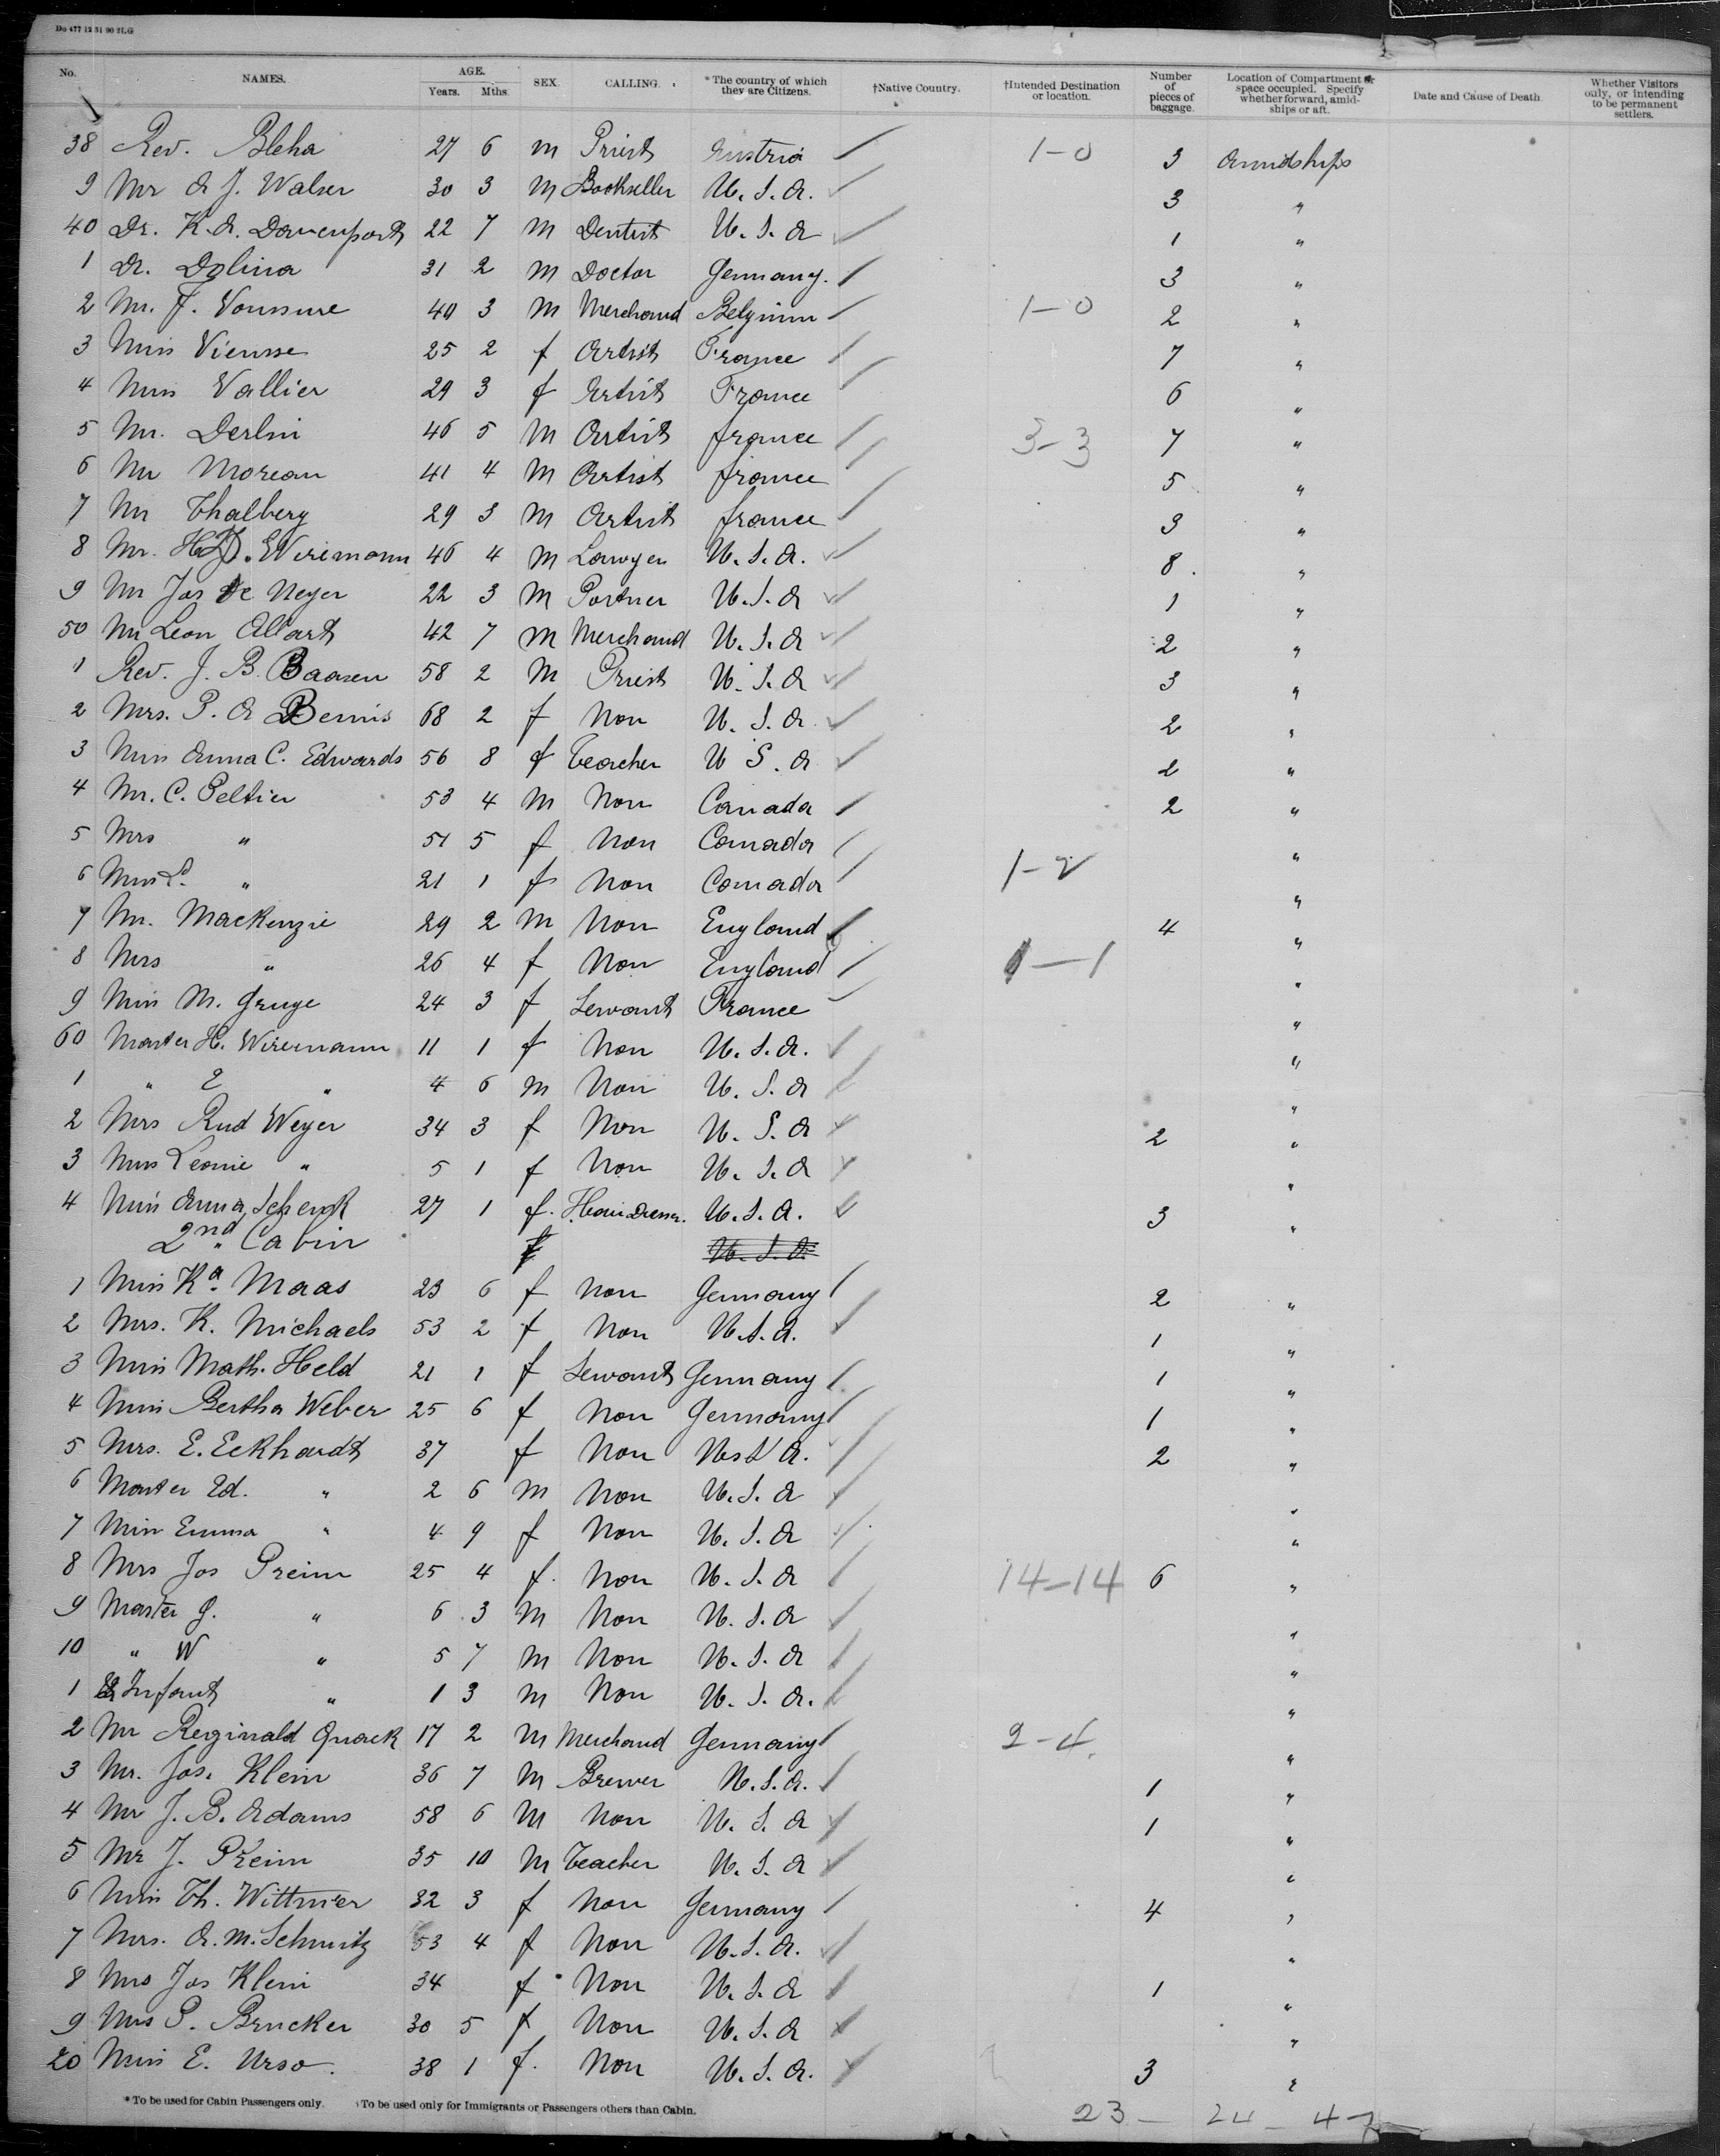 Do 477 12 31 90 2LG
No. NAMES. AGE. Years. Mths. SEX. CALLING. *The country of which they are Citizens. †Native Country. †Intended Destination or location. Number of pieces of baggage. Location of Compartment or space occupied. Specify whether forward, amidships or aft. Date and Cause of Death. Whether Visitors only, or intending to be permanent settlers.
38 Rev. Bleha 27 6 m Priest Austria 1-0 3 Amidships
9 Mr A J. Walser 30 3 m Bookseller U.S.A. 3 "
40 Dr. K. A. Davenport 22 7 m Dentist U.S.A 1 "
1 Dr. Dolina 31 2 m Doctor Germany. 3 "
2 Mr. J. Voussure 40 3 m Merchand Belgium 1-0 2 "
3 Miss Vieusse 25 2 f Artist France 7 "
4 Miss Vallier 29 3 f Artist France 6 "
5 Mr. Derlin 46 5 m Artist france 3-3 7 "
6 Mr Moreau 41 4 m Artist france 5 "
7 Mr Thalberg 29 3 m Artist france 3 "
8 Mr. Wiremann 46 4 m Lawyer U.S.A. 8. "
9 Mr Jos De Neyer 22 3 m Portner U.S.A 1 "
50 Mr Leon Allart 42 7 m Merchand U.S.A 2 "
1 Rev. J. B. Baasen 58 2 m Priest U.S.A 3 "
2 Mrs. P. A Bemis 68 2 f Non U.S.A. 2 "
3 Miss Anna C. Edwards 56 8 f Teacher U S.A 2 "
4 Mr. C. Peltier 53 4 m Non Canada 2 "
5 Mrs " 51 5 f Non Canada "
6 Miss L. " 21 1 f Non Canada 1-2 "
7 Mr. Mackenzie 29 2 m Non England 4 "
8 Mrs " 26 4 f Non England 1-1 "
9 Miss M. Gruge 24 3 f Servant France "
60 Master H. Wiremann 11 1 f Non U.S.A. "
1 " E " 4 6 m Non U.S.A "
2 Mrs Rud Weyer 34 3 f Non U.S.A 2 "
3 Miss Leonie " 5 1 f Non U.S.A "
4 Miss Anna Schenk 27 1 f. Hair Dresser. U.S.A. 3 "
2nd Cabin f U.S.A.
1 Miss Ka. Maas 23 6 f Non Germany 2 "
2 Mrs. K. Michaels 53 2 f Non U.S.A. 1 "
3 Miss Math. Held 21 1 f Servant Germany 1 "
4 Miss Bertha Weber 25 6 f Non Germany 1 "
5 Mrs. E. Eckhardt 37 f Non U.S.A. 2 "
6 Master Ed. " 2 6 m Non U.S.A "
7 Miss Emma " 4 9 f Non U.S.A "
8 Mrs Jos Preim 25 4 f. Non U.S.A 14-14 6 "
9 Master J. " 6 3 m Non U.S.A "
10 " W " 5 7 m Non U.S.A "
1 Infant " 1 3 m Non U.S.A. "
2 Mr Reginald Quack 17 2 m Merchand Germany 2-4. "
3 Mr. Jos. Klein 36 7 m Brewer U.S.A. 1 "
4 Mr J. B. Adams 58 6 m Non U.S.A 1 "
5 Mr J. Preim 35 10 m Teacher U.S.A "
6 Miss Th. Wittmer 32 3 f Non Germany 4 "
7 Mrs. A. M. Schmitz 53 4 f Non U.S.A. "
8 Mrs Jos Klein 34 f Non U.S.A 1 "
9 Mrs P. Brucker 30 5 f Non U.S.A "
20 Miss E. Urso. 38 1 f. Non U.S.A. 3 "
*To be used for Cabin Passengers only. †To be used only for Immigrants or Passengers others than Cabin.
23 - 24 - 47